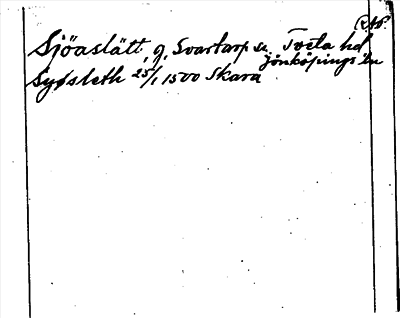 Sjöaslätt, g, Svartarp sn. Tveta hd
Jönköpings län
Syøsleth 25/1 1500 Skara